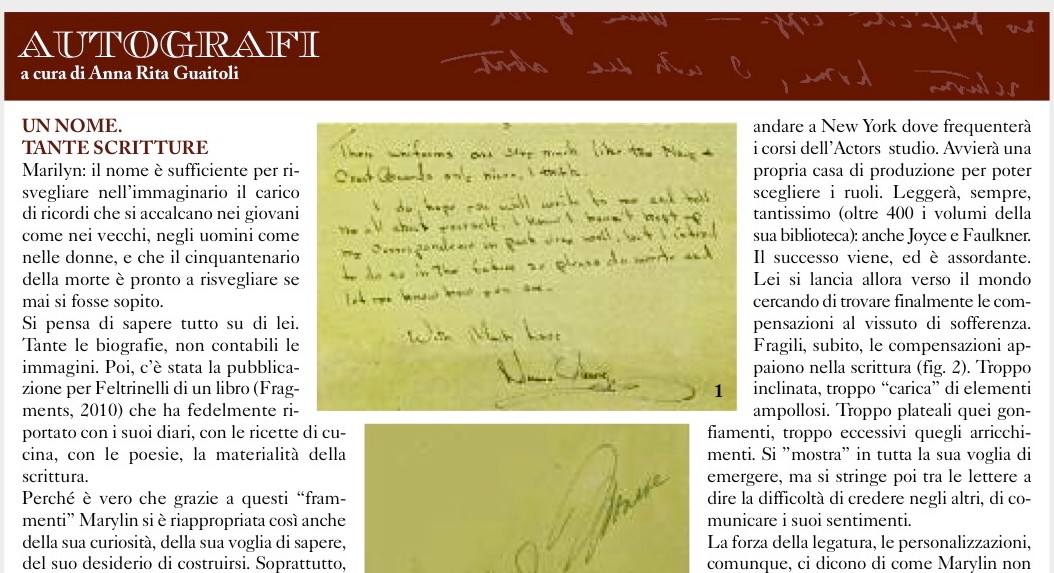 AUTOGRAFI
a cura di Anna Rita Guaitoli
UN NOME.
TANTE SCRITTURE
Marilyn: il nome è sufficiente per ri-
svegliare nell'immaginario il carico
di ricordi che si accalcano nei giovani
come nei vecchi, negli uomini come
nelle donne, e che il cinquantenario
della morte è pronto a risvegliare se
mai si fosse sopito.
Si pensa di sapere tutto su di lei.
Tante le biografie, non contabili le
immagini. Poi, c'è stata la pubblica-
zione per Feltrinelli di un libro (Frag-
ments, 2010) che ha fedelmente ri-
portato con i suoi diari, con le ricette di cu-
cina, con le poesie, la materialità della
scrittura.
Perché è vero che grazie a questi "fram-
menti" Marylin si è riappropriata così anche
della sua curiosità, della sua voglia di sapere,
del suo desiderio di costruirsi. Soprattutto,
Their uniforms are very much like the Navy &
Coast Guards only nicer, I think.
I do hope you will write to me and tell
me all about yourself. I know I haven't kept up
my correspondence in past very well, but I intend
to do so in the future so please do write and
let me know how you are.
With Much Love
1
andare a New York dove frequenterà
i corsi dell'Actors studio. Avvierà una
propria casa di produzione per poter
scegliere i ruoli. Leggerà, sempre,
tantissimo (oltre 400 i volumi della
sua biblioteca): anche Joyce e Faulkner.
Il successo viene, ed è assordante.
Lei si lancia allora verso il mondo
cercando di trovare finalmente le com-
pensazioni al vissuto di sofferenza.
Fragili, subito, le compensazioni ap-
paiono nella scrittura (fig. 2). Troppo
inclinata, troppo "carica" di elementi
ampollosi. Troppo plateali quei gon-
fiamenti, troppo eccessivi quegli arricchi-
menti. Si "mostra" in tutta la sua voglia di
emergere, ma si stringe poi tra le lettere a
dire la difficoltà di credere negli altri, di co-
municare i suoi sentimenti.
La forza della legatura, le personalizzazioni,
comunque, ci dicono di come Marylin non